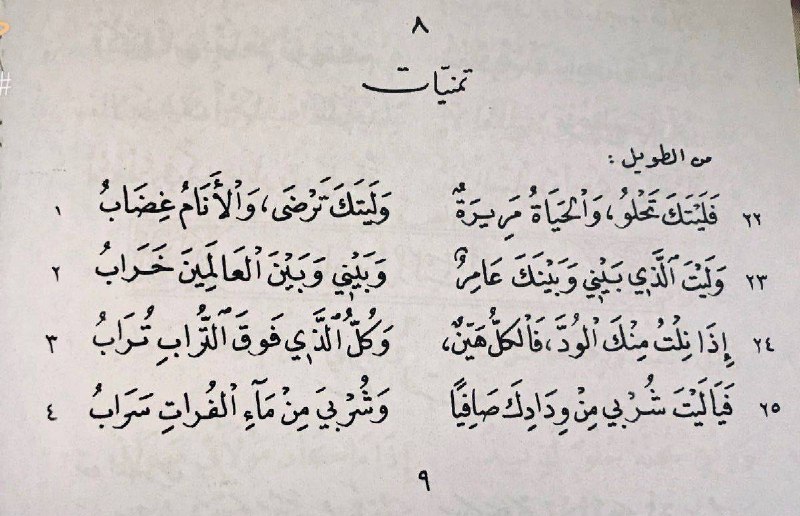 ٨
تمنيّات
من الطويل :
٢٢ فَلَيْتَكَ تَحْلُو، وَالْحَيَاةُ مَرِيرَةٌ وَلَيْتَكَ تَرْضَى، وَالْأَنَامُ غِضَابُ ١
٢٣ وَلَيْتَ الَّذِي بَيْنِي وَبَيْنَكَ عَامِرٌ وَبَيْنِي وَبَيْنَ الْعَالَمِينَ خَرَابُ ٢
٢٤ إِذَا نِلْتُ مِنْكَ الْوُدَّ، فَالْكُلُّ هَيِّنٌ، وَكُلُّ الَّذِي فَوْقَ التُّرَابِ تُرَابُ ٣
٢٥ فَيَا لَيْتَ شُرْبِي مِنْ وِدَادِكَ صَافِيًا وَشُرْبِيَ مِنْ مَآءِ الْفُرَاتِ سَرَابُ ٤
٩